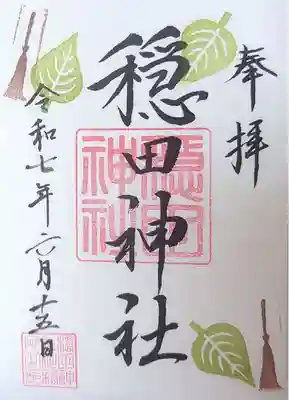 奉拝
穏田神社
穏田神社
令和七年六月十五日